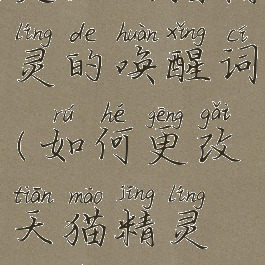 líng de huàn xǐng cí
灵的唤醒词
rú hé gēng gǎi
(如何更改
tiān māo jīng líng
天猫精灵